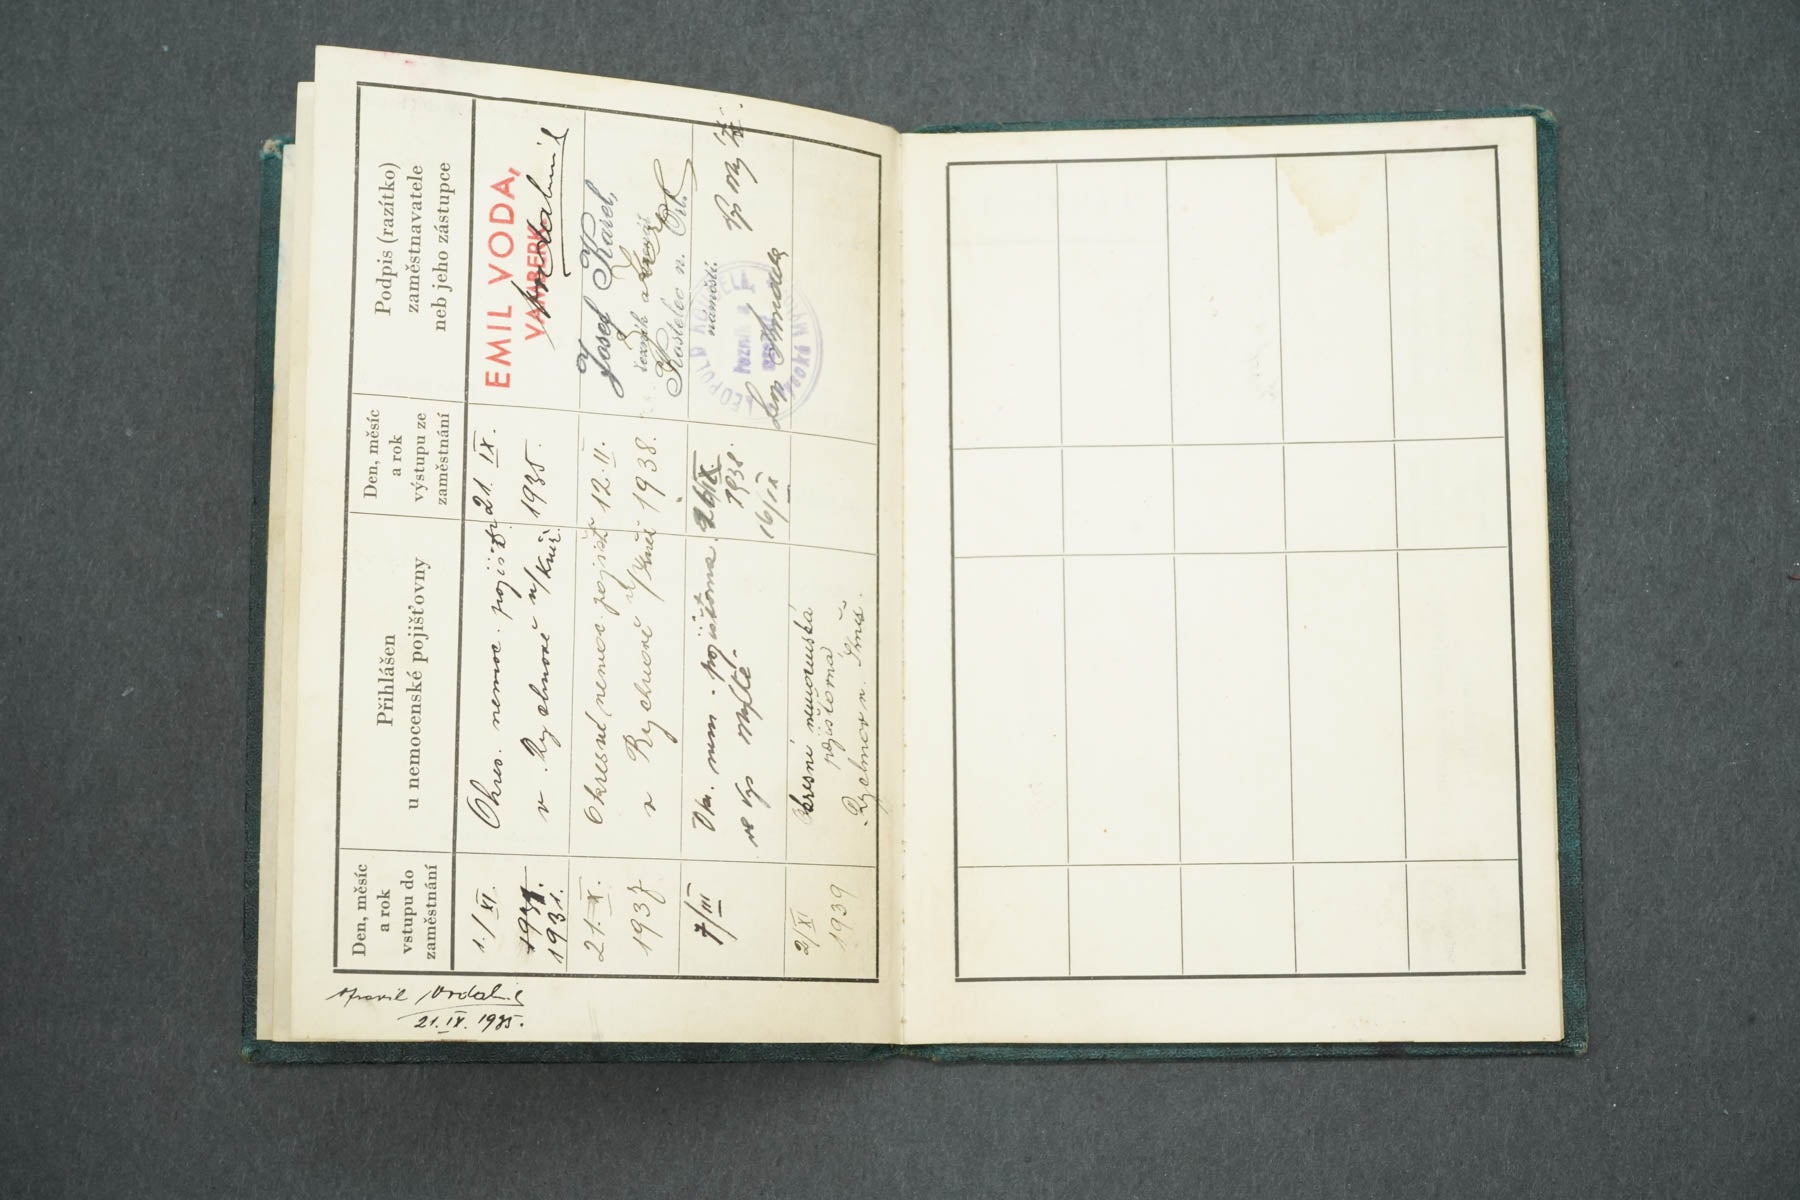 Den, měsíc
a rok
vstupu do
zaměstnání
Přihlášen
u nemocenské pojišťovny
Den, měsíc
a rok
výstupu ze
zaměstnání
Podpis (razítko)
zaměstnavatele
neb jeho zástupce
1./XI.
1931.
Okres. nemoc. pojišť.
v Rychnově n/Kněž.
21. IX.
1935.
EMIL VODA,
VAMBERK
21. X.
1937
Okresní nemoc. pojišť.
v Rychnově n/Kněž
12. II.
1938.
Josef Karel,
řezník a
Kostelec n. Orl.
náměstí.
7/III
Okr. nem. pojišťovna
ve Vys Mýtě.
26/IX.
1938.
16/IX
LEOPOLD
VYSOKÉ MÝTO
2/XI
1939
Okresní nemocenská
pojišťovna
Rychnov n. Kněž.
opravil
21. IX. 1935.